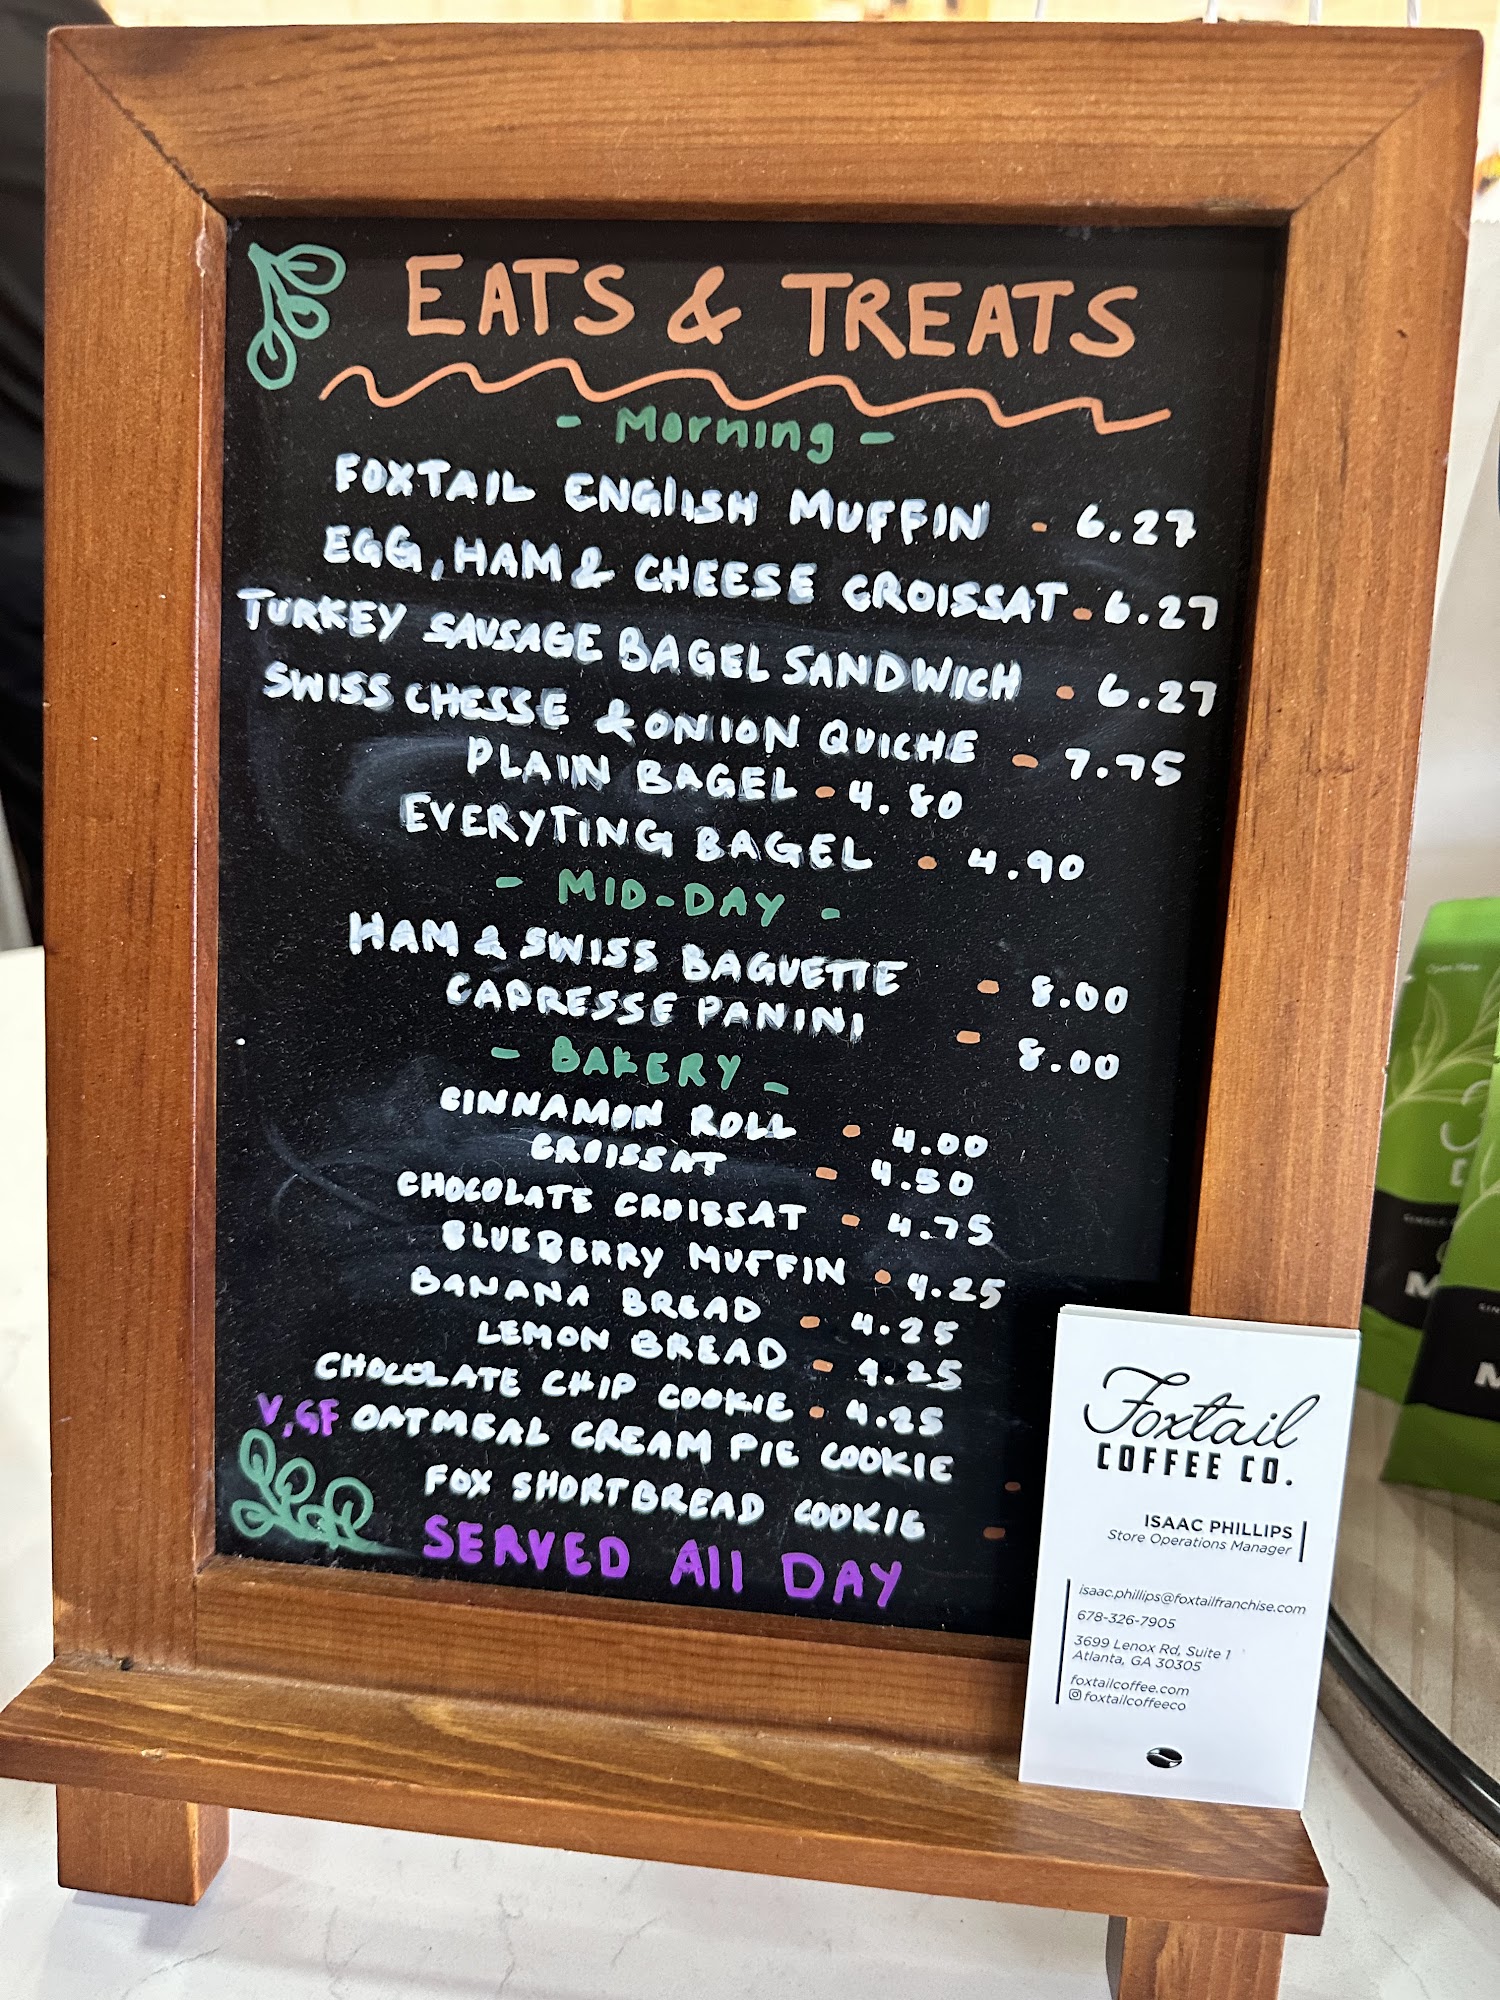 EATS & TREATS
- Morning -
FOXTAIL ENGlISH MUFFIN - 6.27
EGG, HAM & CHEESE CROISSAT - 6.27
TURKEY SAUSAGE BAGEL SANDWICH - 6.27
SWISS CHESSE & ONION QUICHE - 7.75
PLAIN BAGEL - 4.80
EVERYTING BAGEL - 4.90
- MID-DAY -
HAM & SWISS BAGUETTE - 8.00
CAPRESSE PANINI - 8.00
- BAKERY -
CINNAMON ROLL - 4.00
CROISSAT - 4.50
CHOCOLATE CROISSAT - 4.75
BLUEBERRY MUFFIN - 4.25
BANANA BREAD - 4.25
LEMON BREAD - 4.25
CHOCOLATE CHIP COOKIE - 4.25
V,GF OATMEAL CREAM PIE COOKIE -
FOX SHORTBREAD COOKIE -
SERVED All DAY
Foxtail
COFFEE CO.
ISAAC PHILLIPS
Store Operations Manager
isaac.phillips@foxtailfranchise.com
678-326-7905
3699 Lenox Rd, Suite 1
Atlanta, GA 30305
foxtailcoffee.com
foxtailcoffeeco